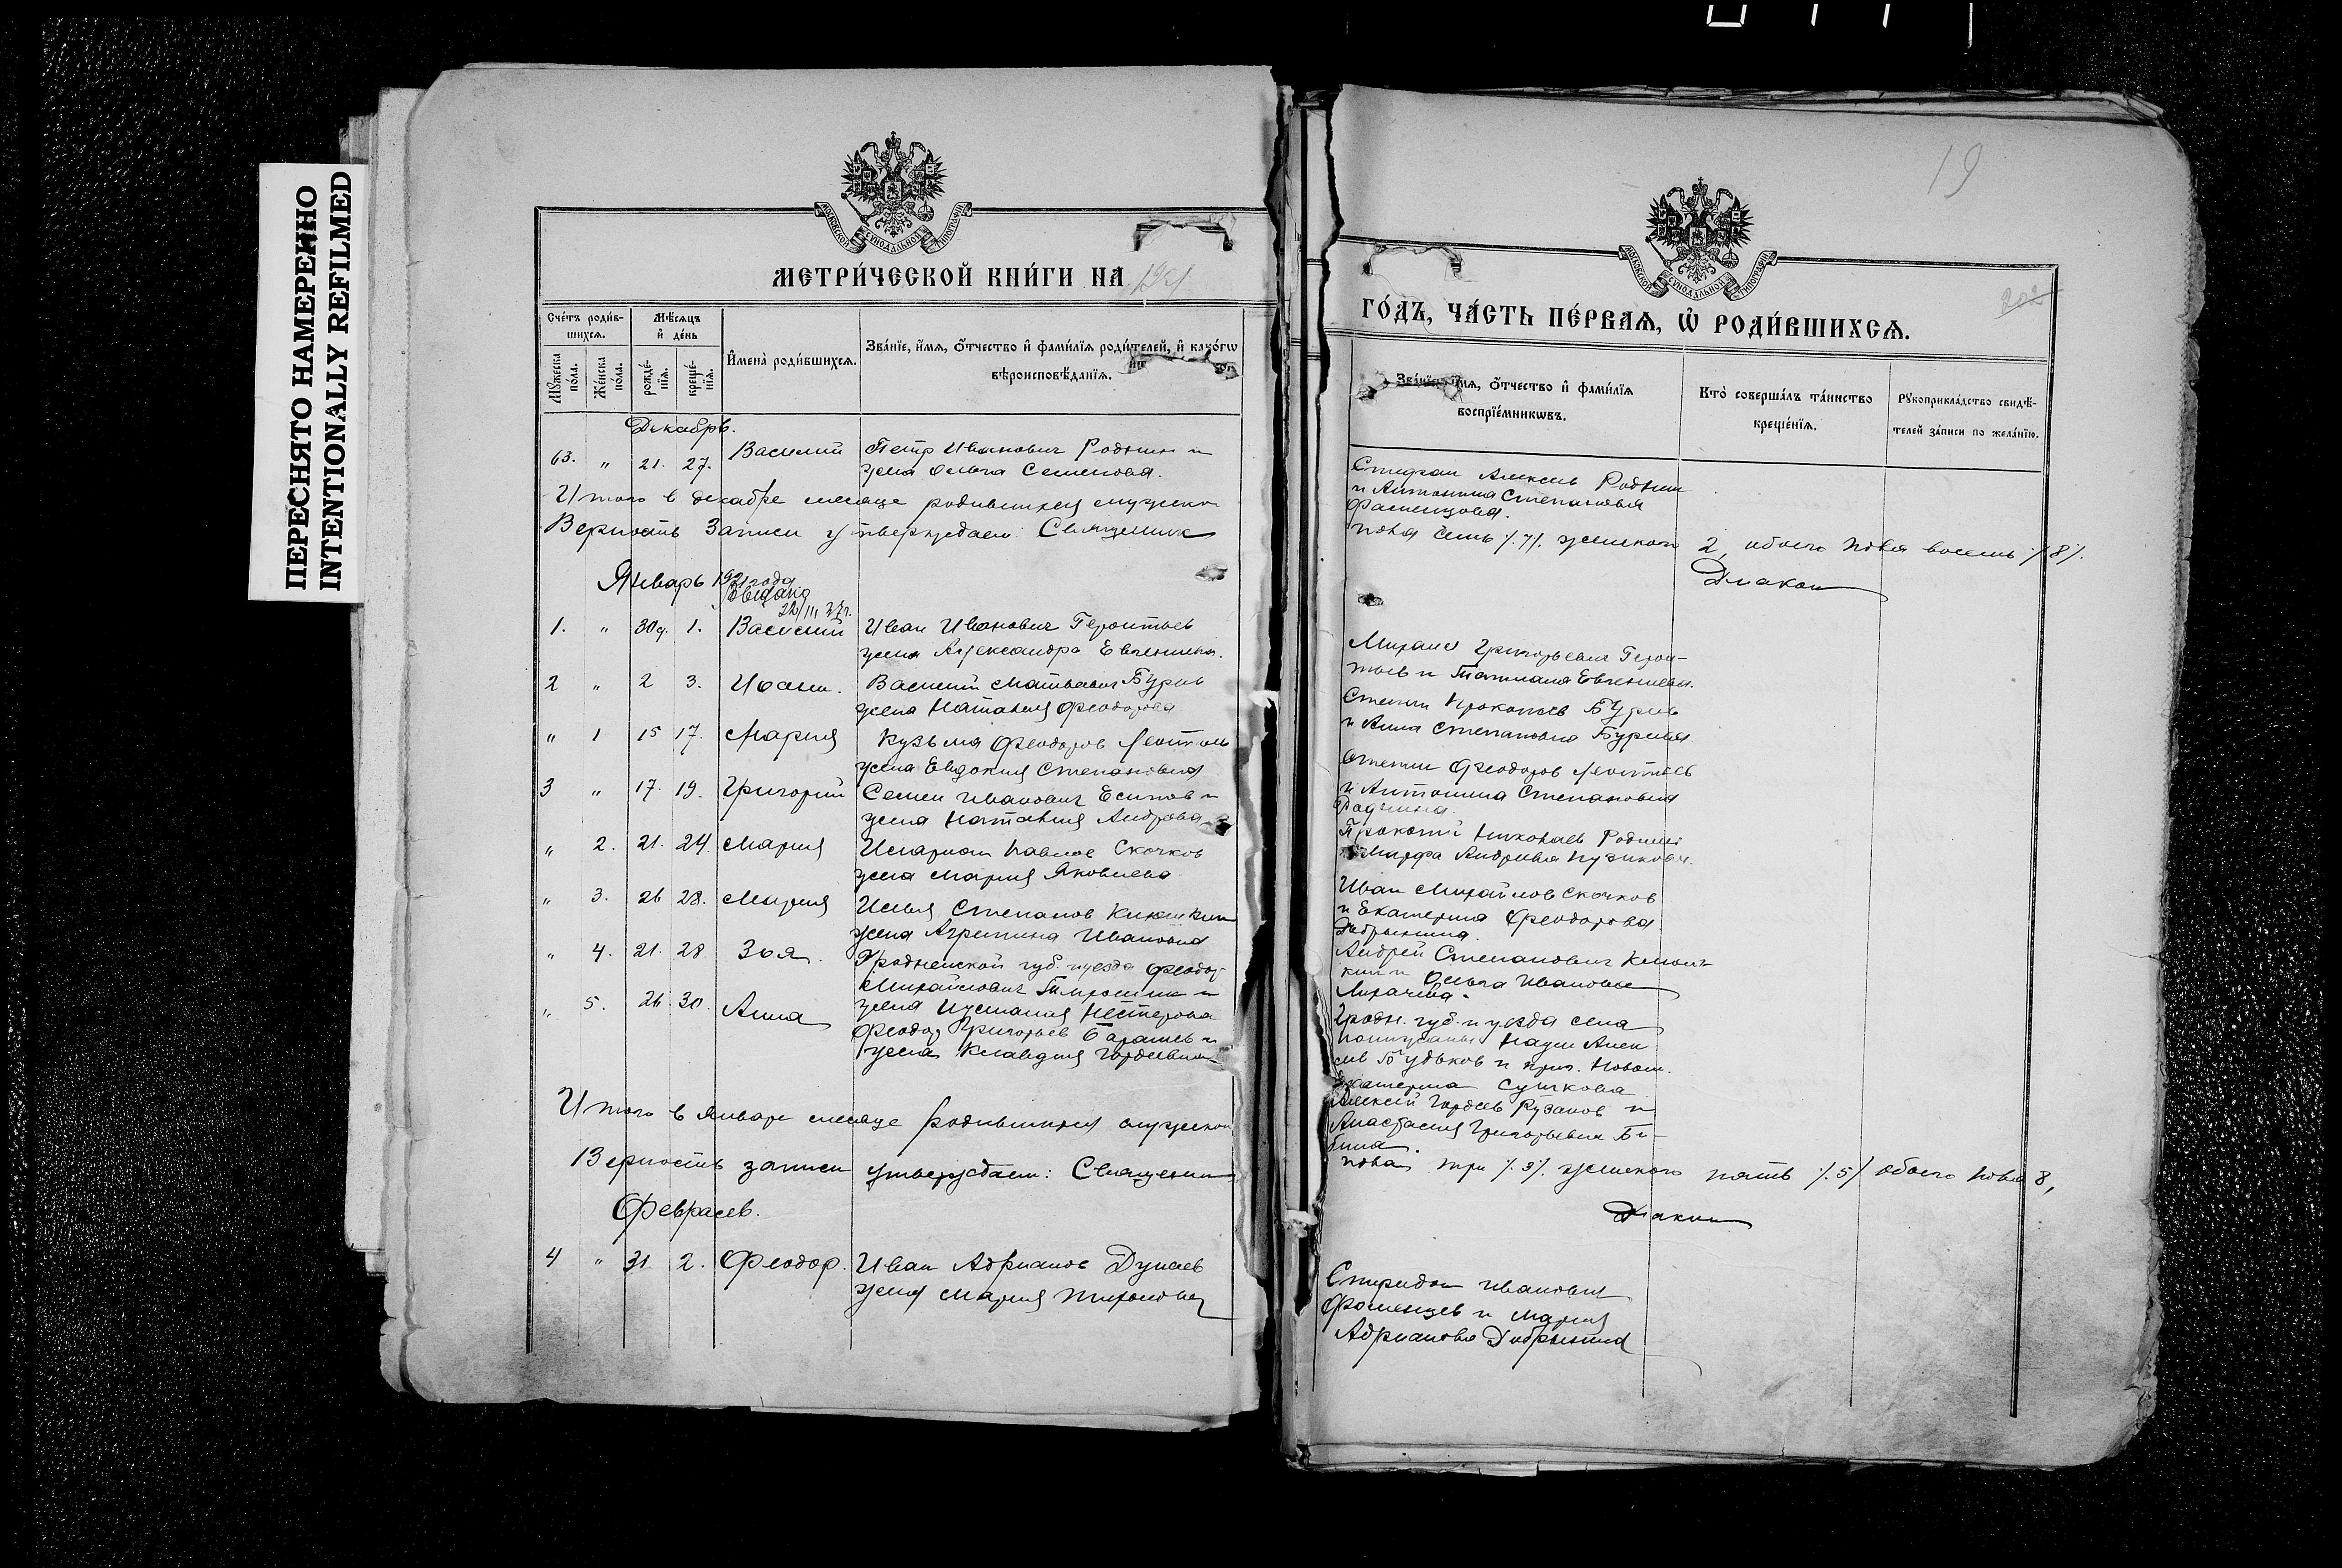 ПЕРЕСНЯТО НАМЕРЕННО
INTENTIONALLY REFILMED
МОСКОВСКОЙ СѴНОДАЛЬНОЙ ТИПОГРАФІИ
МЕТРИ́ЧЕСКОЙ КНИ́ГИ НА 1921
Сче́тъ роди́в-
шихсѧ.
Мѣ́сѧцъ
и҆ де́нь
Мꙋ́жеска по́ла.
Же́нска по́ла.
рожде́-
нїѧ.
креще́-
нїѧ.
И҆мена̀ роди́вшихсѧ.
Зва́нїе, и҆́мѧ, ѻ҆́тчество и҆ фами́лїѧ роди́телей, и҆ како́гѡ
вѣроисповѣ́данїѧ.
Декабрь.
63. " 21. 27. Василий Петр Иванович Родкин и
жена Ольга Семенова.
Итого в декабре месяце родившихся мужска
Верность записи утверждаем: Священник
Январь 1921 года
Выдано
22/III 27г.
1. " 30 д. 1. Василий Иван Иванович Геронтьев
жена Александра Евгениева.
2 " 2 3. Иоанн. Василий Матвеевич Бурцв
жена Наталия Феодорова
" 1 15 17. Мария Кузьма Феодоров Леонтьев
жена Евдокия Степановна
3 " 17. 19. Григорий Семен Иванович Есипов и
жена Наталия Андрова
" 2. 21. 24. Мария Иларион Павлов Скочков
жена Мария Яковлева
" 3. 26 28. Мария Илья Степанов
жена Агрипина Ивановна
" 4. 21. 28 Зоя. Гродненской губ. и уезда Феодор
Михайлович и
жена Нестерова
" 5. 26 30. Анна Феодор Григорьев и
жена Клавдия Гордеевна
Итого в январе месяце родившихся мужска
Верность записи утверждаем: Священник
Февраль.
4 " 31 2. Феодор. Иван Адрианов Дунаев
жена Мария
19
202
МОСКОВСКОЙ СѴНОДАЛЬНОЙ ТИПОГРАФІИ
ГО́ДЪ, ЧА́СТЬ ПЕ́РВАѦ, Ѽ РОДИ́ВШИХСѦ.
Зва́нїе, и҆́мѧ, ѻ҆́тчество и҆ фами́лїѧ
воспрїе́мникѡвъ.
Кто̀ соверша́лъ та́инство
креще́нїѧ.
Рꙋкоприкла́дство свидѣ́-
телей за́писи по жела́нїю.
Стефан Алексеев Родкин
и Антонина Степановна
Фоменцова.
пола семь /.7/. женского 2, обоего пола восемь /.8/.
Диакон
Михаил Григорьевич Герон-
тьев и Татиана Евгениева.
Степан Прокопьев Бурцв
и Анна Степановна Бурцва
Степан Феодоров Леонтьев
и Антонина Степановна
Прокопий Николаев Родкин
и Марфа Андреева
Иван Михайлов Скочков
и Екатерина Феодорова
Добрынина.
Андрей Степанович
Ольга Ивановна
Гродн. губ. и уезда села
Наум Алек
сев Будьков и
Екатерина Сушкова
Алексей Гордеев и
Анастасия Григорьевна
пола три /.3/. женского пять /.5/ обоего пола 8,
Диакон
Спиридон Иванович
Фоменцев и Мария
Адрианова Добрынина